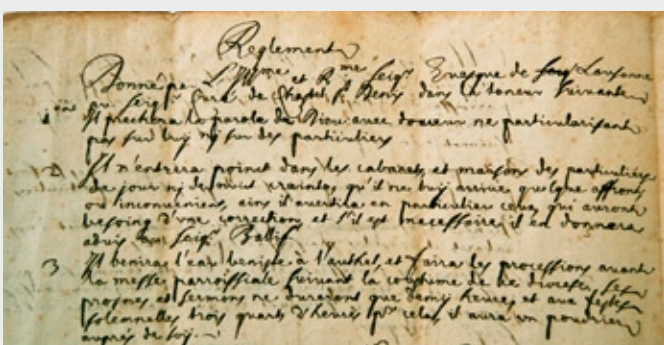 Reglement
Donné par L Ill^me et R^me Seig^r Euesque de Lausanne
au Seig^r Curé de Chastel S^t Denis dans la teneur suiuante
1 Il preschera la parole de Dieu auec douceur ne particularisant
pas sur luy nj sur des particuliers
2 Il n'entrera poinct dans les cabarets, et maisons des particuliers
de jour nj de nuict crainte, qu'il ne luy arriue quelque affront,
ou inconuenient, ains il auertira en particulier ceux, qui auront
besoing d'vne correction, et s'il est necessaire, il en donnera
aduis au Seig^r Ballif
3 Il benira l'eau benite a l'authel, et faira les processions auant
la messe parroissiale suiuant la coustume de ce diocese, ses
prosnes, et sermons ne dureront que demj heure, et aux festes
solemnelles trois quarts d'heures p^r cela, il aura vn poudrier
aupres de soy.